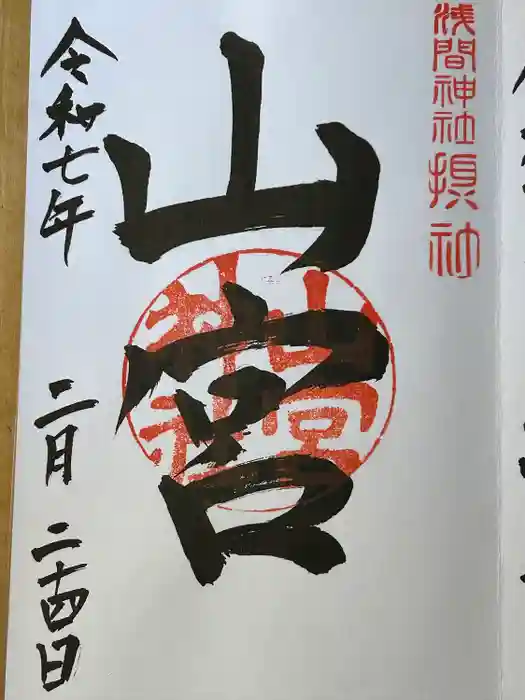 浅間神社摂社
山宮
山宮神社
令和七年
二月二十四日